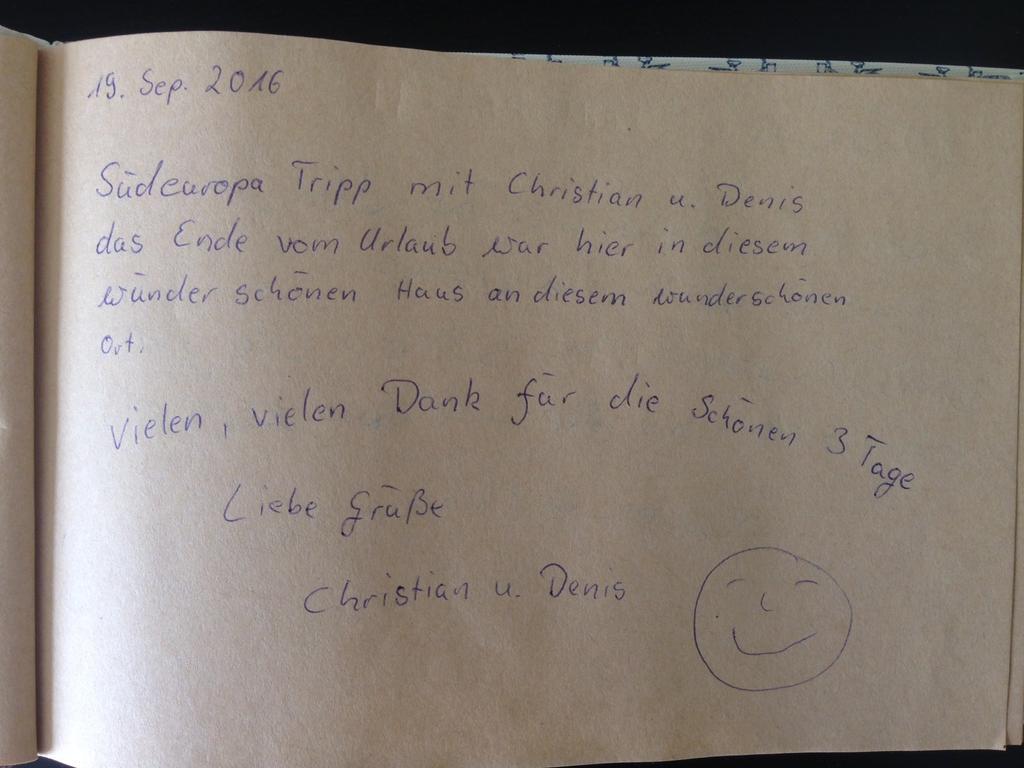 19. Sep. 2016
Südeuropa Tripp mit Christian u. Denis
das Ende vom Urlaub war hier in diesem
wunder schönen Haus an diesem wunderschönen
Ort.
Vielen, vielen Dank für die Schönen 3 Tage
Liebe Grüße
Christian u. Denis